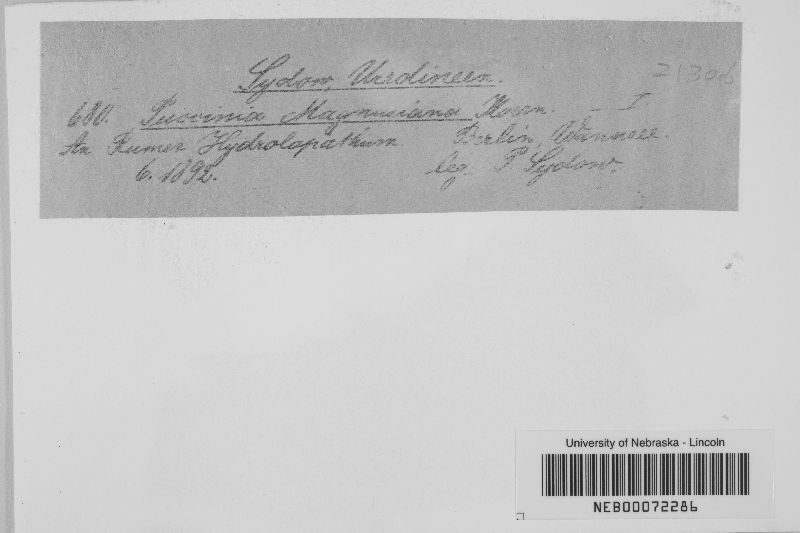 Sydow, Uredineen.
21306
680. Puccinia Magnusiana Körn. – I.
An Rumex Hydrolapathum Berlin, Wannsee.
6. 1892. leg. P. Sydow.
University of Nebraska - Lincoln
NEB00072286